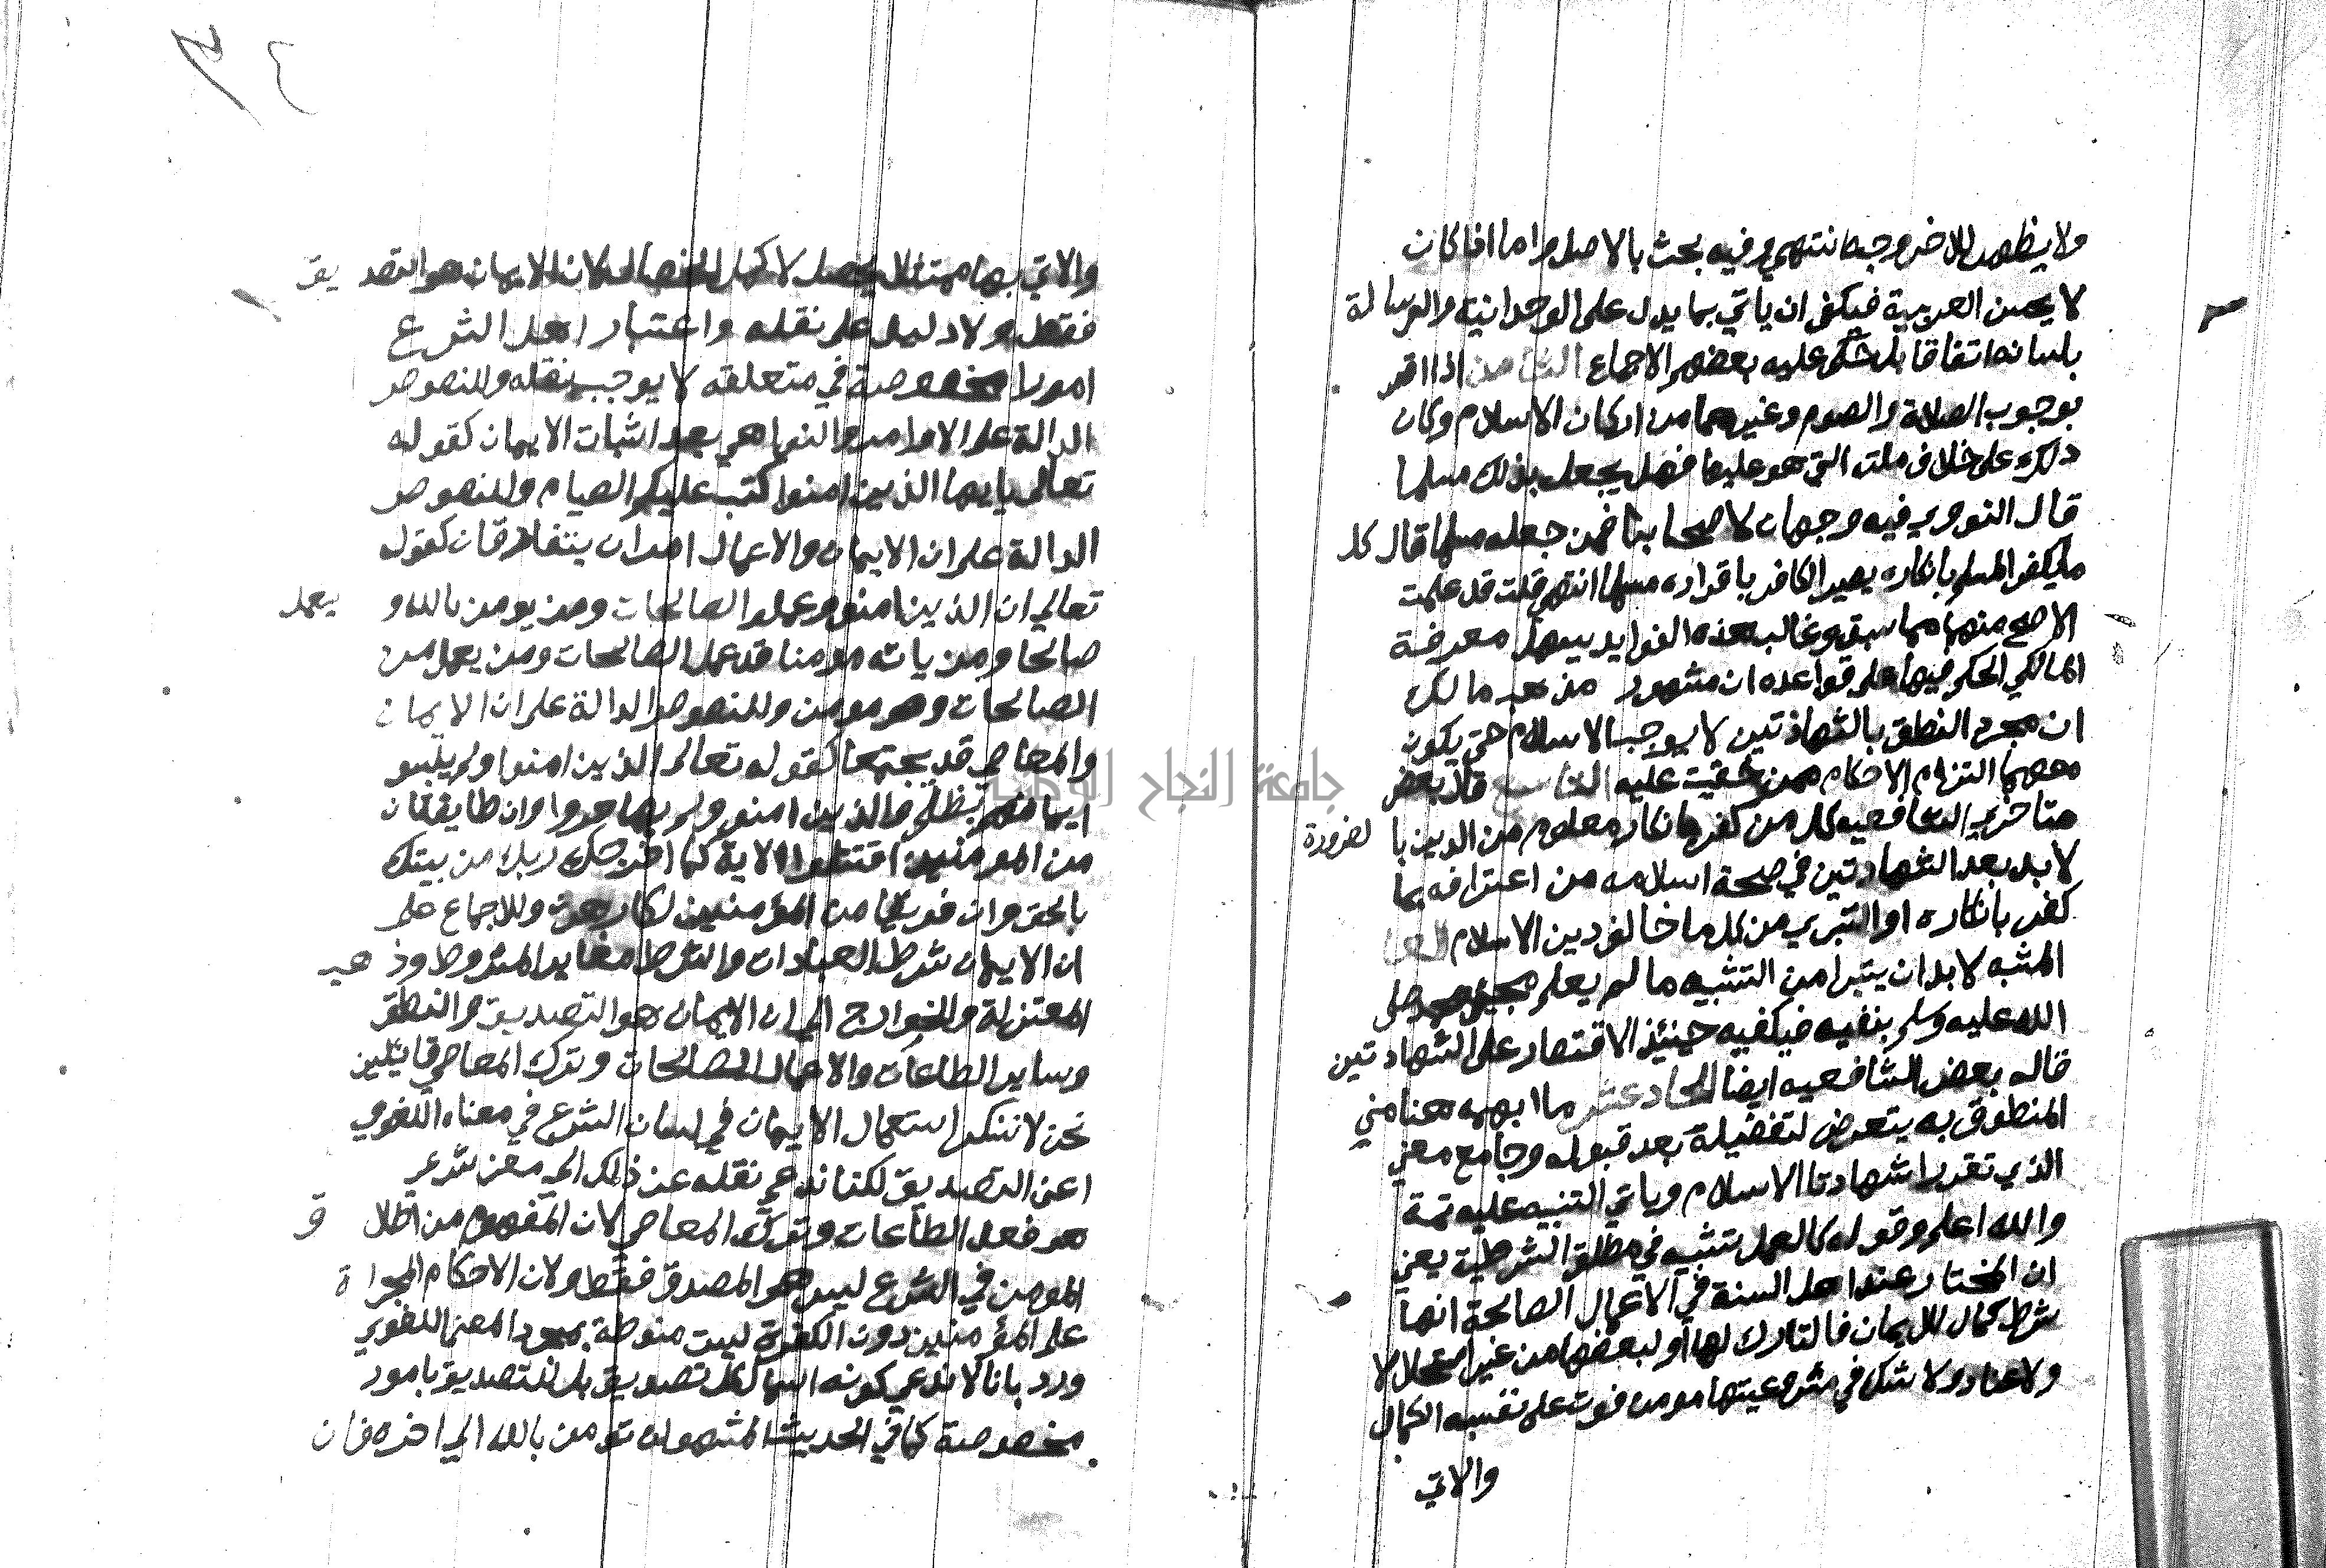 ولا يظهر للاخر وجه انتهي وفيه بحث بالاصل واما اذا كان
لا يحسن العربية فيكفى ان ياتي بما يدل على الوحدانية والرسالة
بلسانه اتفاقا بل حكى عليه بعضهم الاجماع الثامن اذا اقر
بوجوب الصلاة والصوم وغيرهما من اركان الاسلام وكان
ذلك على خلاف ملته التي هو عليها فهل يجعل بذلك مسلما
قال النووي فيه وجهان لاصحابنا فمن جعله مسلما قال كل
ما يكفر المسلم بانكاره يصير الكافر باقراره مسلما انتهي قلت قد علمت
الاصح منهما مما سبق وغالب هذه الفوايد يسهل معرفة
المالكي الحكم فيها على قواعده ان مشهور مذهب مالك
ان مجرد النطق بالشهادتين لا يوجب الاسلام حتى يكون
معهما التزام الاحكام ممن خفيت عليه التاسع قال بعض
متاخري الشافعيه كل من كفر بانكار معلوم من الدين بالضرورة
لا بد بعد الشهادتين في صحة اسلامه من اعترافه بما
كفر بانكاره او التبري من كل ما خالف دين الاسلام
المشبه لا بد ان يتبرا من التشبيه ما لم يعلم مجيئ محمد صلى
الله عليه وسلم بنفيه فيكفيه حينئذ الاقتصار على الشهادتين
قاله بعض الشافعيه ايضا الحادي عشر ما ابهمه هنا مني
المنطوق به يتعرض لتفضيله بعد قبوله وجامع معني
الذي تقررا شهادتا الاسلام وياتي التنبيه عليه ثمة
والله اعلم وقوله كالعمل تشبيه في مطلق الشرطية يعني
ان المختار عند اهل السنة في الاعمال الصالحة انها
شرط كمال للايمان فالتارك لها او لبعضها من غير استحلال
ولا عناد ولا شك في مشروعيتها مومن فوت على نفسه الكمال
والاتي
والاتي بها ممتثلا محصل لاكمل الخصال لان الايمان هو التصديق
فقط ولا دليل على نقله واعتبار اهل الشرع
امورا مخصوصة في متعلقه لا يوجب نقله وللنصوص
الدالة على الاوامر والنواهي بعد اثبات الايمان كقوله
تعالى يايها الذين امنوا كتب عليكم الصيام وللنصوص
الدالة على ان الايمان والاعمال امران يتفارقان كقوله
تعالي ان الذين امنوا وعملوا الصالحات ومن يومن بالله ويعمل
صالحا ومن ياته مومنا قد عمل الصالحات ومن يعمل من
الصالحات وهو مومن وللنصوص الدالة على ان الايمان
والمعاصي قد يجتمعا كقوله تعالى الذين امنوا ولم يلبسو
ايمانهم بظلم والذين امنو ولم يهاجروا وان طايفتان
من المومنين اقتتلوا الاية كما اخرجك ربك من بيتك
بالحق وان فريقا من المؤمنين لكارهون وللاجماع على
ان الايمان شرط العبادات والشرط مغاير المشروط وذهب
المعتزلة والخوارج الى ان الايمان هو التصديق والنطق
وساير الطاعات والاعمال الصالحات وترك المعاصي قايلين
نحن لا ننكر استعمال الايمان في لسان الشرع في معناه اللغوي
اعني التصديق لكنا ندعي نقله عن ذلك الي معنى شرعي
هو فعل الطاعات وترك المعاصي لان المفهوم من اطلاق
المومن في الشرع ليس هو المصدق فقط ولان الاحكام المجراة
على المؤمنين دون الكفرة ليست منوطة بمجرد المعنى اللغوي
ورد بانا لا ندعي كونه اسما لكل تصديق بل للتصديق بامور
مخصوصة كما في الحديث المشهور ان تومن بالله الي اخره فان
جامعة النجاح الوطنية